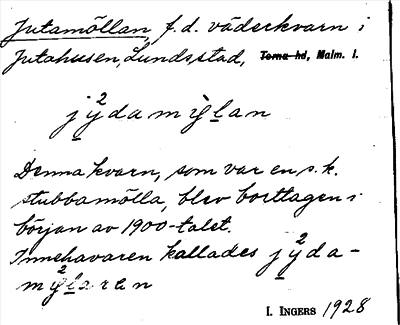 Jutamöllan, f.d. väderkvarn i
Jutahusen, Lunds stad, Torna hd, Malm. l.
j ý² d a m ỳ l a n
Denna kvarn, som var en s.k.
stubbamölla, blev borttagen i
början av 1900-talet.
Innehavaren kallades j ý² d a -
m ỳ² l a r e n
I. INGERS 1928